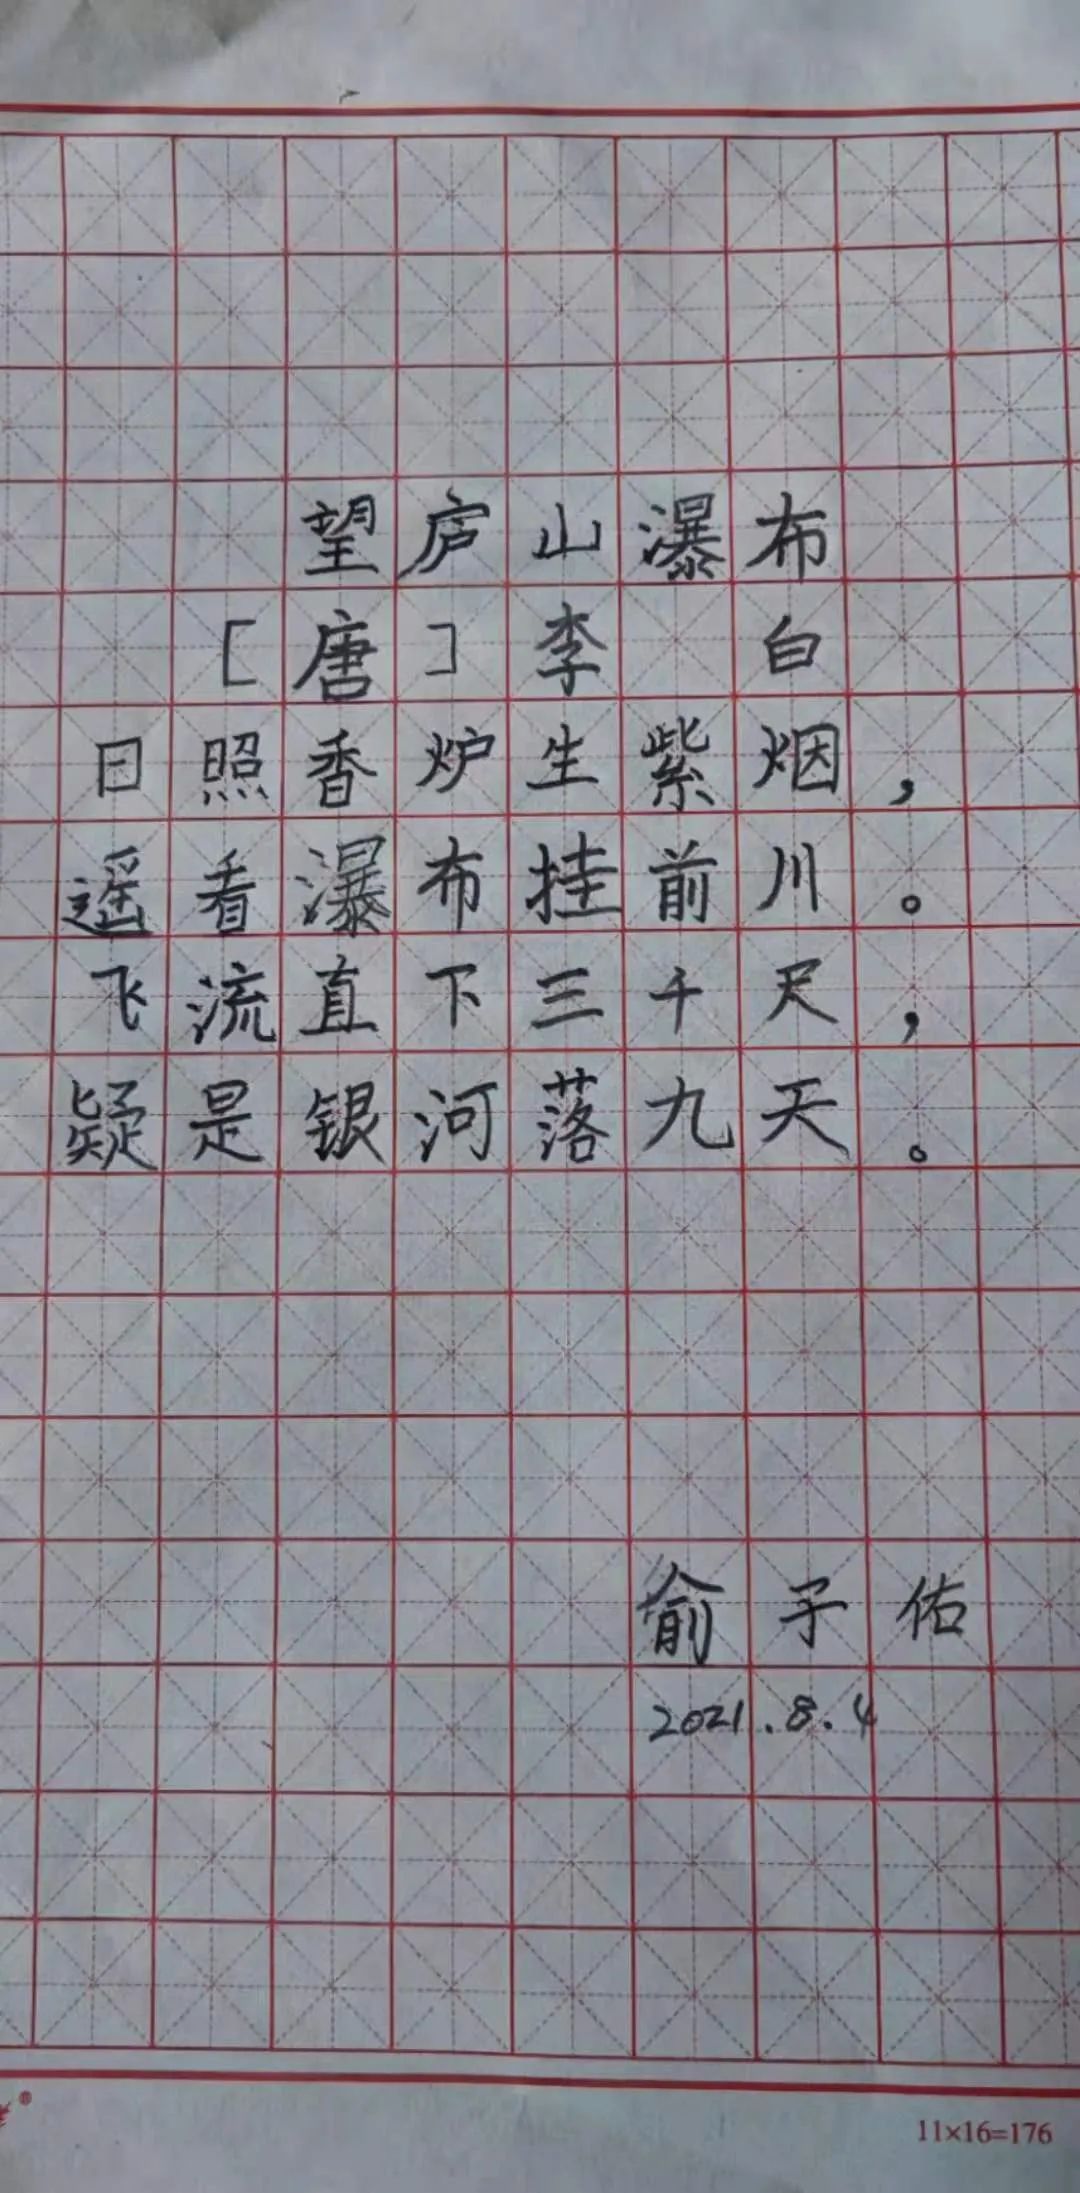 望庐山瀑布
[唐]李 白
日照香炉生紫烟，
遥看瀑布挂前川。
飞流直下三千尺，
疑是银河落九天。
俞子佑
2021.8.4
11×16=176